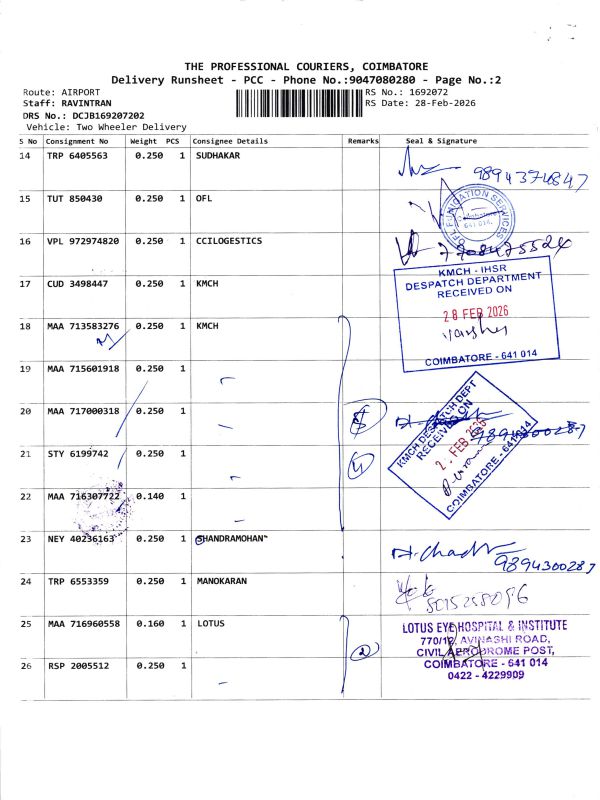 THE PROFESSIONAL COURIERS, COIMBATORE
Delivery Runsheet - PCC - Phone No.:9047080280 - Page No.:2
Route: AIRPORT
RS No.: 1692072
Staff: RAVINTRAN
RS Date: 28-Feb-2026
DRS No.: DCJB169207202
Vehicle: Two Wheeler Delivery
S No Consignment No Weight PCS Consignee Details Remarks Seal & Signature
14 TRP 6405563 0.250 1 SUDHAKAR
9894374847
15 TUT 850430 0.250 1 OFL
OFL FUMIGATION SERVICES
Coimbatore
641 014.
16 VPL 972974820 0.250 1 CCILOGESTICS
7708475524
17 CUD 3498447 0.250 1 KMCH
KMCH - IHSR
DESPATCH DEPARTMENT
RECEIVED ON
28 FEB 2026
COIMBATORE - 641 014
18 MAA 713583276 0.250 1 KMCH
19 MAA 715601918 0.250 1
20 MAA 717000318 0.250 1
KMCH DESPATCH DEPT
RECEIVED ON
FEB 2026
COIMBATORE - 641 014
9894300287
21 STY 6199742 0.250 1
22 MAA 716307722 0.140 1
23 NEY 40236163 0.250 1 SHANDRAMOHAN
9894300287
24 TRP 6553359 0.250 1 MANOKARAN
25 MAA 716960558 0.160 1 LOTUS
LOTUS EYE HOSPITAL & INSTITUTE
770/12, AVINASHI ROAD,
CIVIL AERODROME POST,
COIMBATORE - 641 014
0422 - 4229909
2
26 RSP 2005512 0.250 1